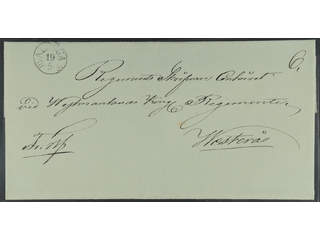 19
6.
Regements Skrifvare Contoiret
vid Westmanlands Kongl Regemente,
Westerås